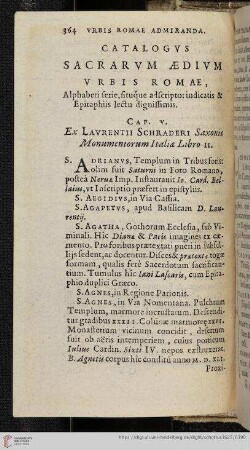 364 VRBIS ROMAE ADMIRANDA.
CATALOGVS
SACRARVM ÆDIVM
VRBIS ROMAE,
Alphabeti serie, situque adscripto: indicatis &
Epitaphiis lectu dignissimis.
CAP. V.
Ex LAVRENTII SCHRADERI Saxonis
Monumentorum Italiæ Libro II.
S. ADRIANVS, Templum in Tribus foris:
olim fuit Saturni in Foro Romano,
posteà Nervæ Imp. Instauravit Io. Card. Bel-
laius, vt Inscriptio præsert in epistyliis.
S. AEGIDIVS, in Via Cassia.
S. AGAPETVS, apud Basilicam D. Lau-
rentij.
S. AGATHA, Gothorum Ecclesia, sub Vi-
minali. Hîc Dianæ & Pacis imagines ex cæ-
mento. Prosonibus prætextati pueri in subsel-
lijs sedent, ac docentur. Disces & prætextæ togæ
formam, qualis ferè Sacerdotum sacrifican-
tium. Tumulus hîc Iani Lascaris, cum Epita-
phio duplici Græco.
S. AGNES, in Regione Parionis.
S. AGNES, in Via Nomentana. Pulchrum
Templum, marmore incrustatum. Descendi-
tur gradibus
Monasterium vicinum concidit, desertum
fuit ob aëris intemperiem, cuius porticum
Iulius Cardin. Sixti IV. nepos exstruxerat.
B. Agnetis corpus hîc conditũ anno M. D. XLI.
Proxi-